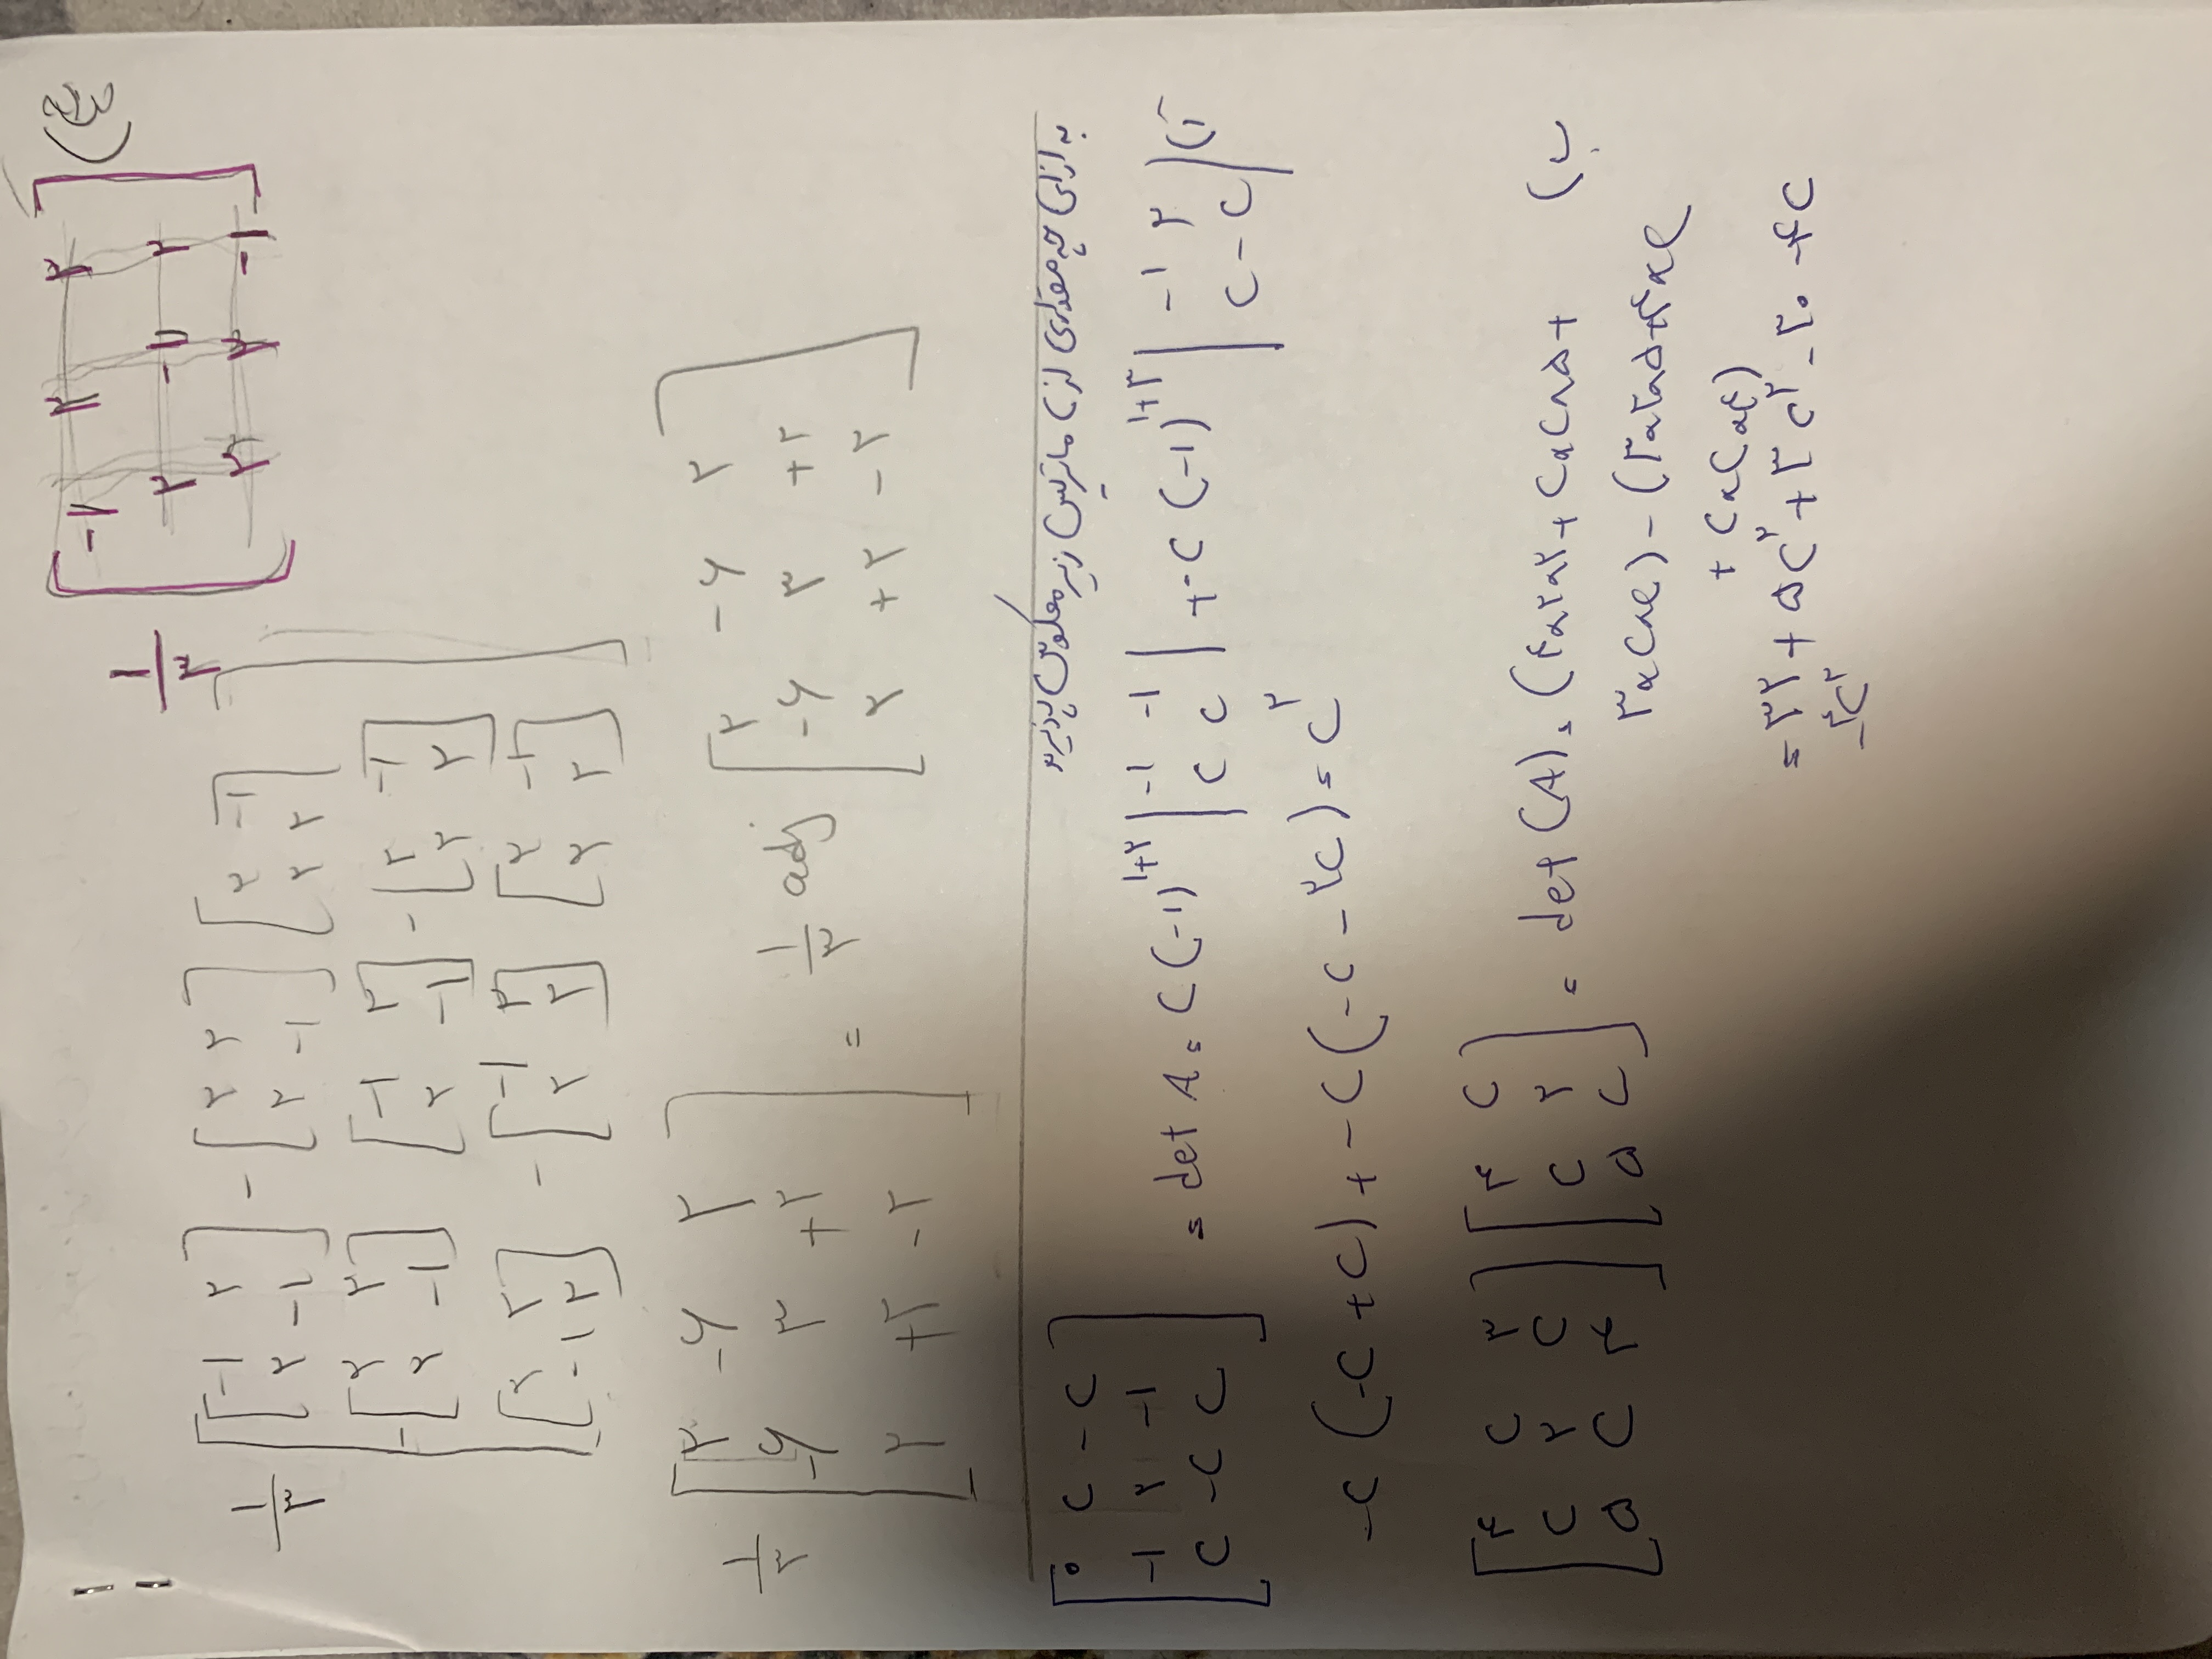 ج)
۱/۳ [-۱ ۲ ۲
۲ -۱ ۲
۲ ۲ -۱]
۱/۳ [[-۱ ۲ / ۲ -۱] -[۲ ۲ / ۲ -۱] [۲ -۱ / ۲ ۲]
-[۲ ۲ / ۲ -۱] [-۱ ۲ / ۲ -۱] -[۲ -۱ / ۲ ۲]
[۲ ۲ / -۱ ۲] -[-۱ ۲ / ۲ ۲] [۲ -۱ / ۲ ۲]]
۱/۳ [۳ -۶ ۲ / -۶ ۳ +۲ / ۲ +۲ -۲] = ۱/۳ adj [۳ -۶ ۲ / -۶ ۳ +۲ / ۲ +۲ -۲]
به ازای چه مقداری از c ماتریس زیر معکوس پذیرند
آ)
[۰ c -c / -۱ ۲ -۱ / c -c c] = det A = c(-۱)^۱+۲ |-۱ -۱ / c c| + -c(-۱)^۱+۳ |-۱ ۲ / c -c|
-c(-c+c) + -c(-c-۲c) = c^۲
ب)
[۴ c ۳ / c ۲ c / ۵ c ۴] [۴ c / c ۲ / ۵ c] = det(A) = (۴×۲×۴ + c×c×۵ +
۳×c×c) - (۳×۲×۵+۴×c
+ c×c×۴)
= ۳۲ + ۵c^۲ + ۳c^۲ - ۳۰ - ۴c
-۴c^۲